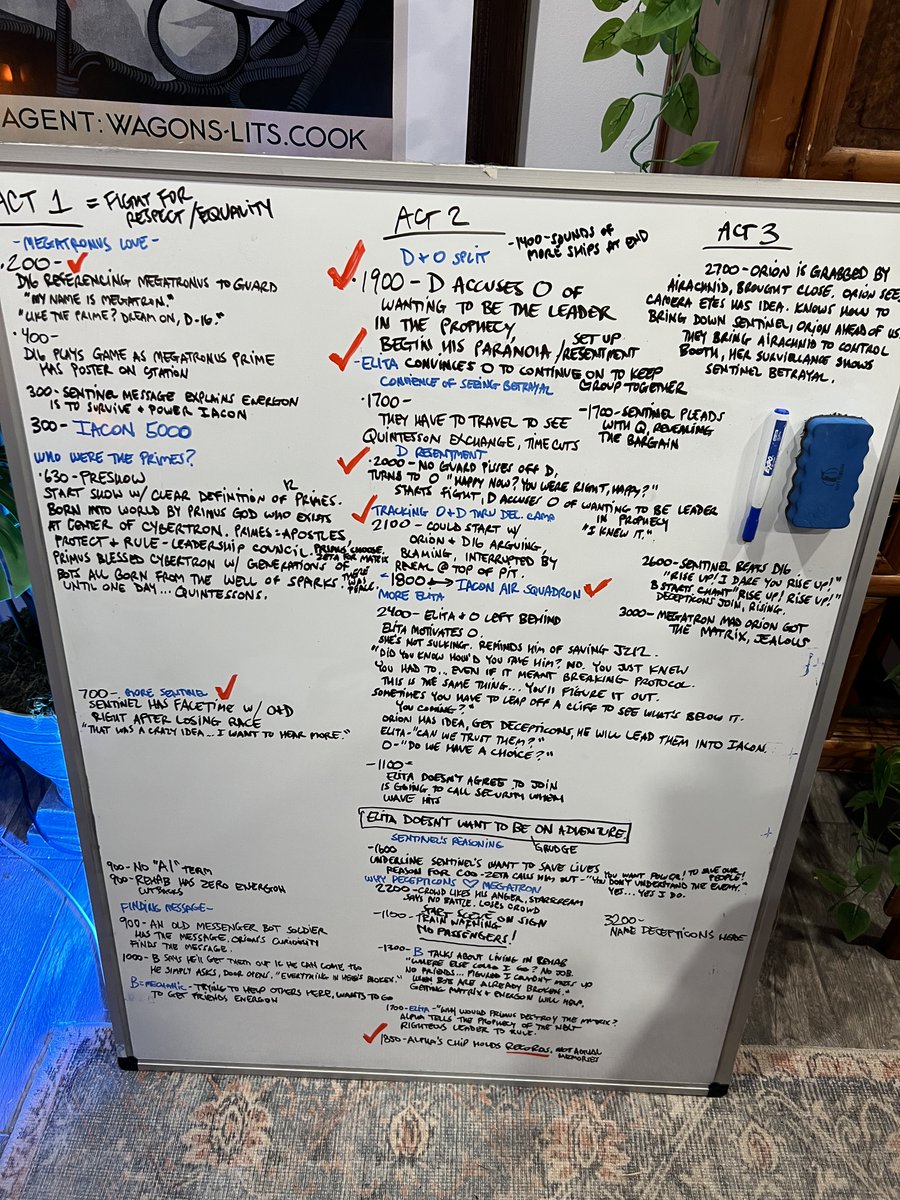 AGENT: WAGONS-LITS.COOK
ACT 1 = FIGHT FOR
RESPECT/EQUALITY
-MEGATRONUS LOVE-
•200-
D16 REFERENCING MEGATRONUS TO GUARD
"MY NAME IS MEGATRON."
"LIKE THE PRIME? DREAM ON, D-16."
•400-
D16 PLAYS GAME AS MEGATRONUS PRIME
HAS POSTER ON STATION
300- SENTINEL MESSAGE EXPLAINS ENERGON
IS TO SURVIVE + POWER IACON
300- IACON 5000
WHO WERE THE PRIMES?
•630- PRESHOW
START SHOW W/ CLEAR DEFINITION OF 12 PRIMES.
BORN INTO WORLD BY PRIMUS GOD WHO EXISTS
AT CENTER OF CYBERTRON. PRIMES=APOSTLES,
PROTECT + RULE - LEADERSHIP COUNCIL. PRIMES CHOOSE
ZETA FOR MATRIX
PRIMUS BLESSED CYBERTRON W/ GENERATIONS OF
BOTS ALL BORN FROM THE WELL OF SPARKS THERE WAS
PEACE.
UNTIL ONE DAY... QUINTESSONS.
700- MORE SENTINEL
SENTINEL HAS FACETIME W/ O+D
RIGHT AFTER LOSING RACE
"THAT WAS A CRAZY IDEA... I WANT TO HEAR MORE."
900- NO "AI" TERM
900- REHAB HAS ZERO ENERGON
FINDING MESSAGE-
900- AN OLD MESSENGER BOT SOLDIER
HAS THE MESSAGE, ORION'S CURIOSITY
FINDS THE MESSAGE.
1000- B SAYS HE'LL GET THEM OUT IF HE CAN COME TOO
HE SIMPLY ASKS, DOOR OPENS, "EVERYTHING IN HERE'S BROKEN."
B=MECHANIC- TRYING TO HELP OTHERS HERE, WANTS TO GO
TO GET FRIENDS ENERGON
ACT 2
D + O SPLIT
-1400- SOUNDS OF
MORE SHIPS AT END
•1900- D ACCUSES O OF
WANTING TO BE THE LEADER
IN THE PROPHECY,
BEGIN HIS PARANOIA / SET UP
RESENTMENT
-ELITA CONVINCES O TO CONTINUE ON TO KEEP
GROUP TOGETHER
CONVIENCE OF SEEING BETRAYAL
•1700-
THEY HAVE TO TRAVEL TO SEE
QUINTESSON EXCHANGE, TIME CUTS
-1700- SENTINEL PLEADS
WITH Q, REVEALING
THE BARGAIN
D RESENTMENT
•2000- NO GUARD PISSES OFF D,
TURNS TO O "HAPPY NOW? YOU WERE RIGHT, HAPPY?"
STARTS FIGHT, D ACCUSES O OF WANTING TO BE LEADER
IN PROPHECY
"I KNEW IT."
TRACKING O+D THRU DEL. CAMP
2100- COULD START W/
ORION + D16 ARGUING,
BLAMING, INTERRUPTED BY
REVEAL @ TOP OF PIT.
-1800 ↔ IACON AIR SQUADRON
MORE ELITA
2400- ELITA + O LEFT BEHIND
ELITA MOTIVATES O.
SHE'S NOT SULKING. REMINDS HIM OF SAVING JZ12.
"DID YOU KNOW HOW'D YOU SAVE HIM? NO. YOU JUST KNEW
YOU HAD TO... EVEN IF IT MEANT BREAKING PROTOCOL.
THIS IS THE SAME THING... YOU'LL FIGURE IT OUT.
SOMETIMES YOU HAVE TO LEAP OFF A CLIFF TO SEE WHAT'S BELOW IT.
YOU COMING?"
ORION HAS IDEA, GET DECEPTICONS, HE WILL LEAD THEM INTO IACON.
ELITA- "CAN WE TRUST THEM?"
O- "DO WE HAVE A CHOICE?"
-1100-
ELITA DOESN'T AGREE TO JOIN
IS GOING TO CALL SECURITY WHEN
WAVE HITS
ELITA DOESN'T WANT TO BE ON ADVENTURE.
GRUDGE
SENTINEL'S REASONING
-1600
UNDERLINE SENTINEL'S WANT TO SAVE LIVES
REASON FOR COO- ZETA CALLS HIM OUT - "YOU WANT POWER! TO SAVE OUR PEOPLE!
"YOU DON'T UNDERSTAND THE ENEMY."
YES... YES I DO.
WHY DECEPTICONS ♡ MEGATRON
2200- CROWD LIKES HIS ANGER, STARSCREAM
SAYS NO BATTLE. LOSES CROWD
-1100- START SCENE ON SIGN
TRAIN WARNING
NO PASSENGERS!
-1300- B TALKS ABOUT LIVING IN REHAB
"WHERE ELSE COULD I GO? NO JOB.
NO FRIENDS... FIGURED I COULDN'T MESS UP
WHEN BOTS ARE ALREADY BROKEN."
GETTING MATRIX + ENERGON WILL HELP.
1700- ELITA- "WHY WOULD PRIMUS DESTROY THE MATRIX?
ALPHA TELLS THE PROPHECY OF THE NEXT
RIGHTEOUS LEADER TO RULE.
1850- ALPHA'S CHIP HOLDS RECORDS, NOT ACTUAL
MEMORIES
ACT 3
2700- ORION IS GRABBED BY
AIRACHNID, BROUGHT CLOSE. ORION SEE
CAMERA EYES HAS IDEA. KNOWS HOW TO
BRING DOWN SENTINEL, ORION AHEAD OF US
THEY BRING AIRACHNID TO CONTROL
BOOTH, HER SURVIELLANCE SHOWS
SENTINEL BETRAYAL.
EXPO
2600- SENTINEL BEATS D16
"RISE UP! I DARE YOU RISE UP!"
B STARTS CHANT "RISE UP! RISE UP!"
DECEPTICONS JOIN, RISING.
3000- MEGATRON MAD ORION GOT
THE MATRIX, JEALOUS
3200-
NAME DECEPTICONS HERE